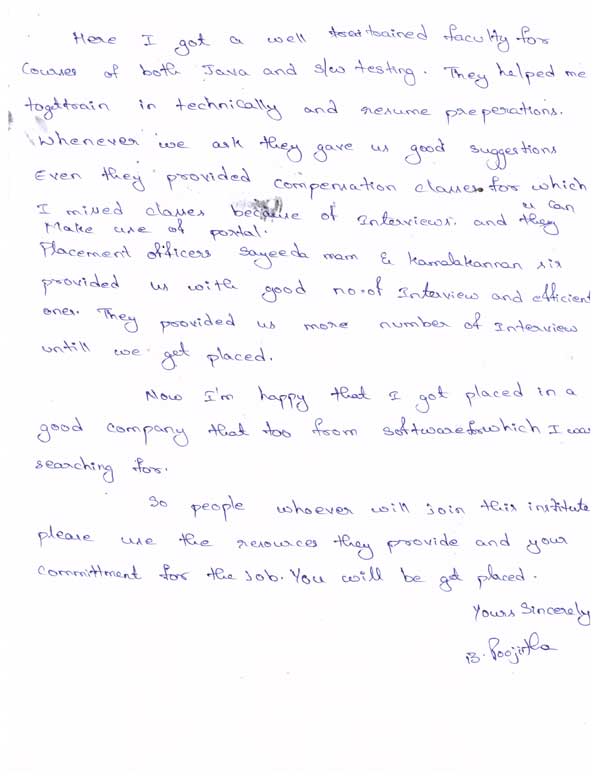 Here I got a well trained faculty for
Courses of both Java and s/w testing. They helped me
to train in technically and resume preperations.
Whenever we ask they gave us good suggestions
Even they provided compensation classes for which
I missed classes because of Interviews. and they
u can
Make use of portal.
Placement officers Sayeeda mam & Kamalakannan sir
provided us with good no.of Interview and efficient
ones. They provided us more number of Interview
untill we get placed.
Now I'm happy that I got placed in a
good company that too from software for which I was
searching for.
So people whoever will join this institute
please use the resources they provide and your
committment for the job. You will be get placed.
Yours Sincerely
B. Poojitha